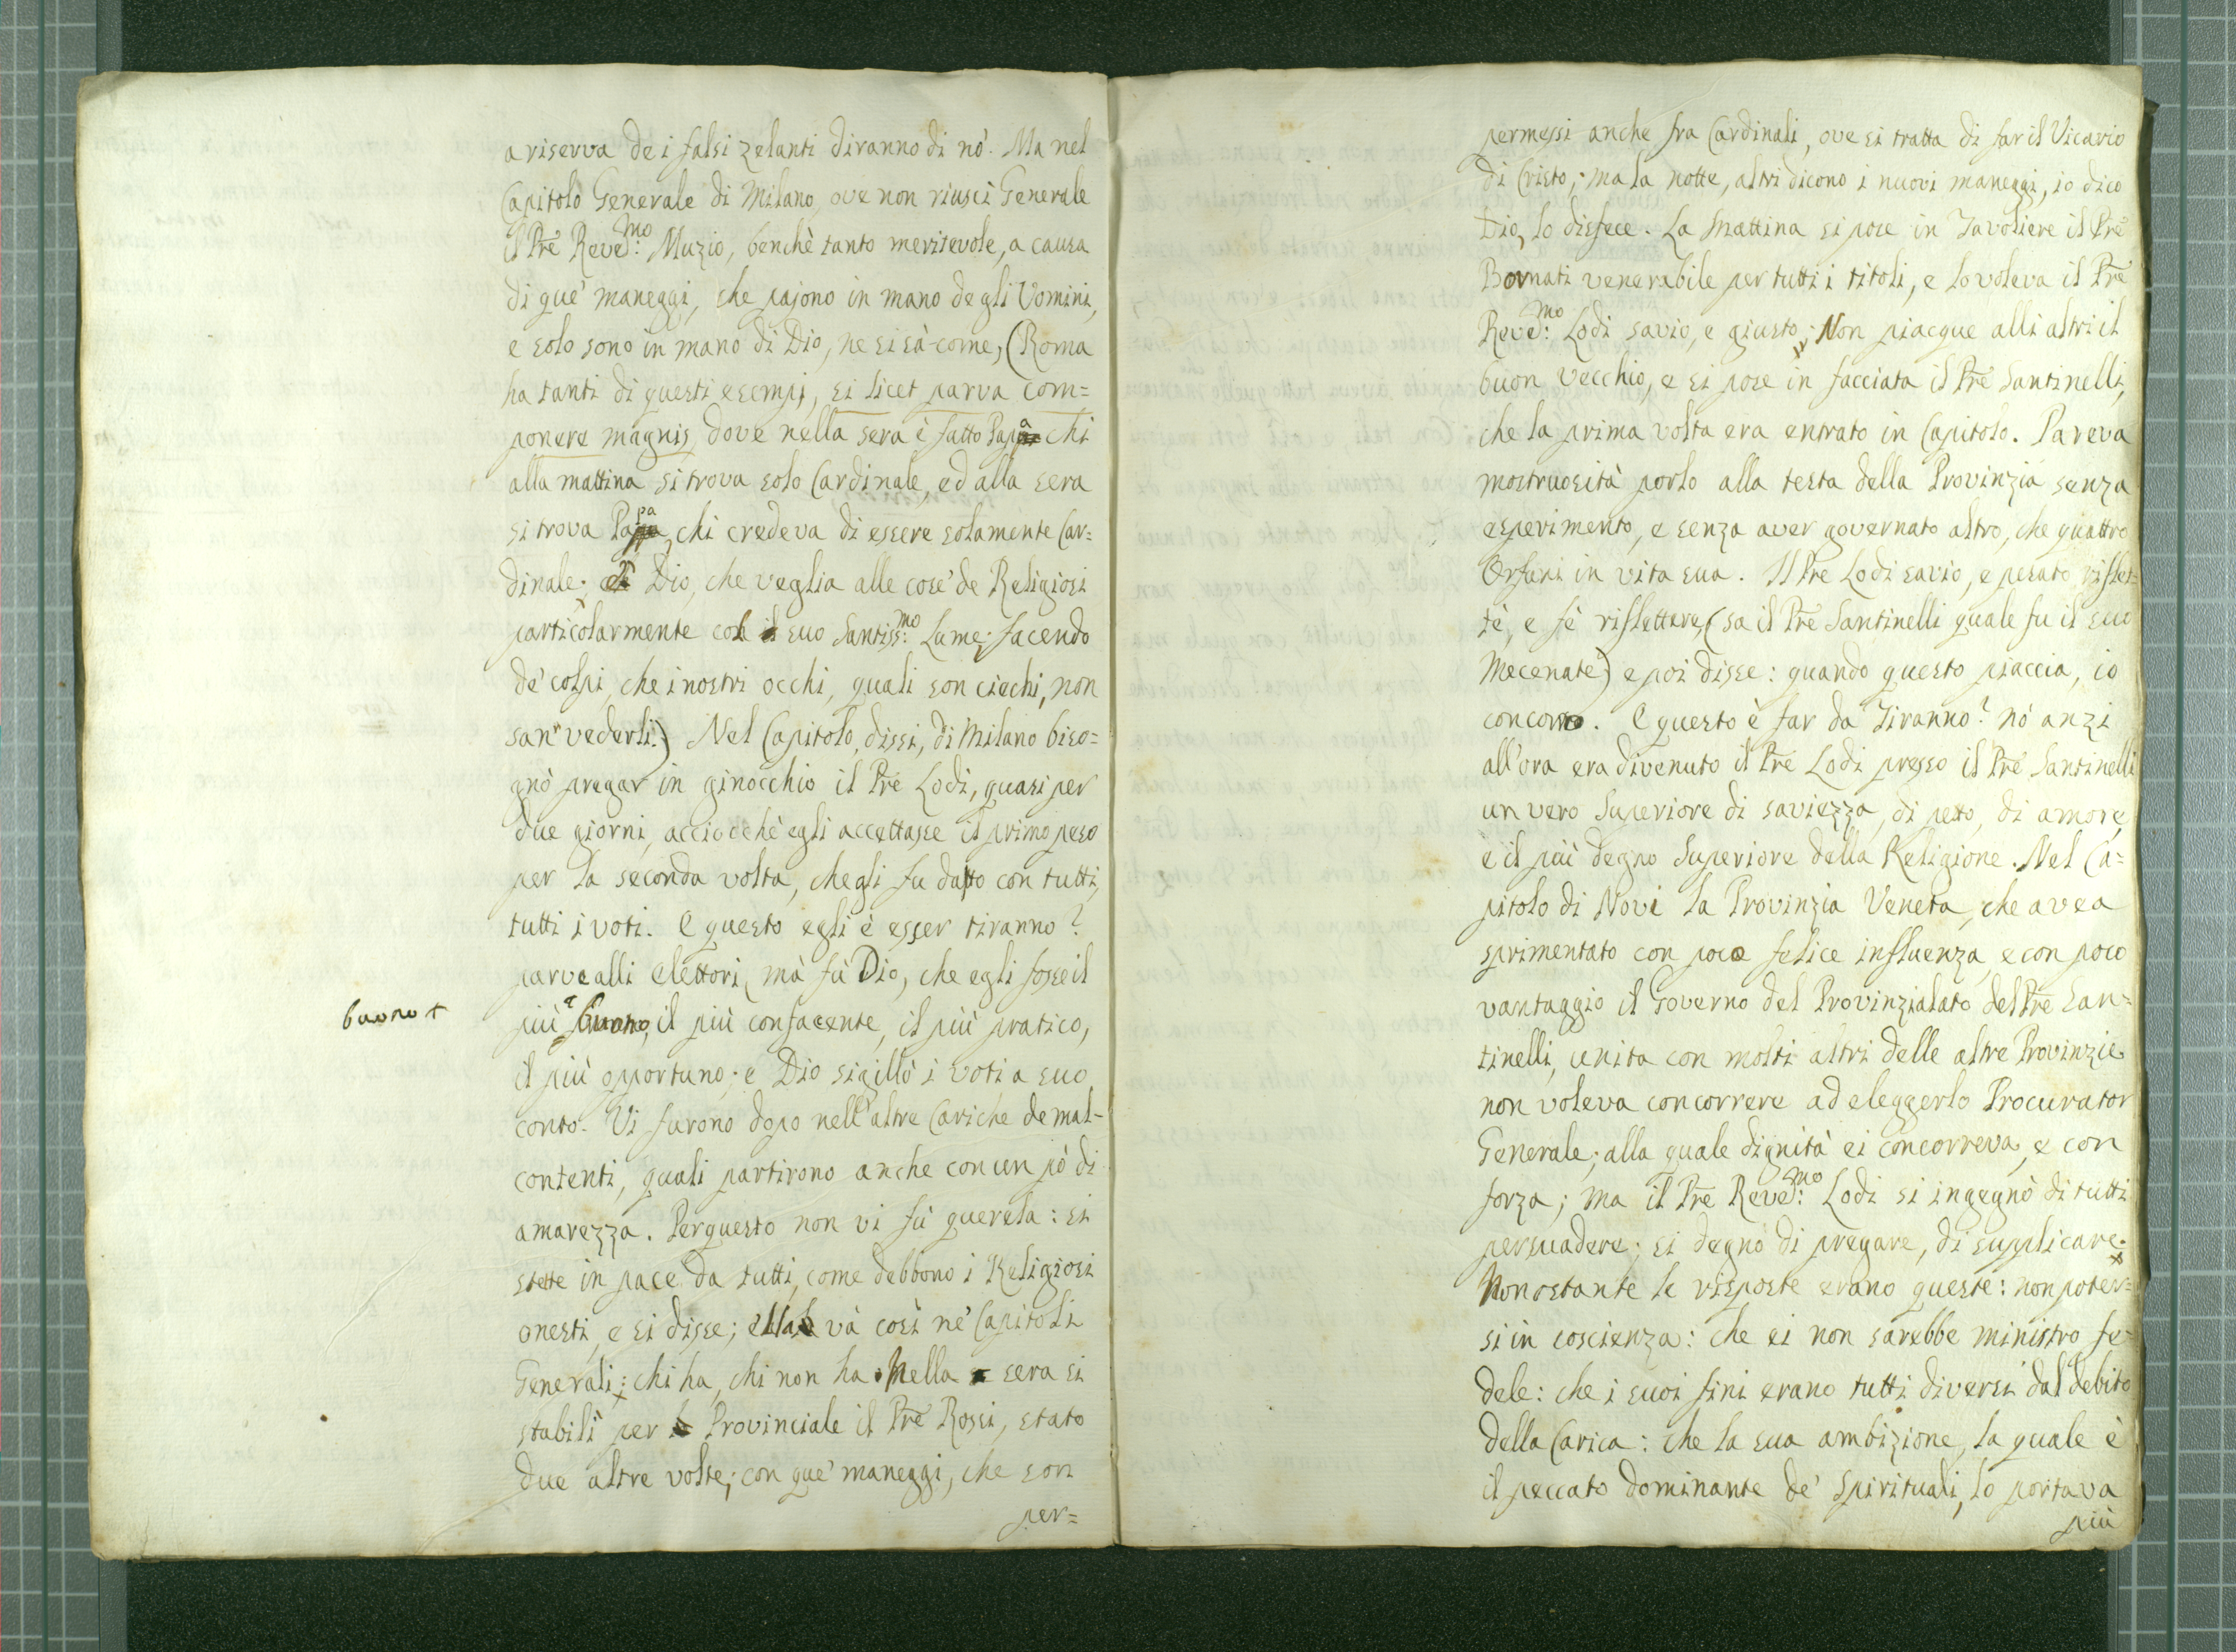 a riserva de i falsi zelanti diranno di nò. Ma nel
Capitolo Generale di Milano, ove non riuscì Generale
il Prē Reve:mo Muzio, benchè tanto meritevole, a causa
di que' maneggi, che pajono in mano degli Uomini,
e solo sono in mano di Dio, ne si sà come, (Roma
ha tanti di questi esempj, si licet parva com=
ponere magnis, dove nella sera è fatto Papa chi
alla mattina si trova solo Cardinale, ed alla sera
si trova Papa, chi credeva di essere solamente Car=
dinale; Dio, che veglia alle cose de Religiosi
particolarmente col suo Santiss:mo Lume; facendo
de' colpi, che i nostri occhi, quali son ciechi, non
san vederli.) Nel Capitolo, dissi, di Milano biso=
gnò pregar in ginocchio il Prē Lodi, quasi per
due giorni, acciocchè egli accettasse il primo peso
per la seconda volta, che gli fu dato con tutti,
tutti i voti. E questo egli è esser tiranno?
parve alli Elettori, mà fù Dio, che egli fosse il
buono +
più buono, il più confacente, il più pratico,
il più opportuno; e Dio sigillò i voti a suo
conto. Vi furono dopo nell'altre Cariche de mal-
contenti, quali partirono anche con un pò di
amarezza. Per questo non vi fù querela: si
stette in pace da tutti, come debbono i Religiosi
onesti, e si disse; ella và così nè Capitoli
Generali; chi ha, chi non ha. Nella sera si
stabilì per Provinciale il Prē Rossi, stato
due altre volte; con que' maneggi, che son
per=
permessi anche fra Cardinali, ove si tratta di far il Vicario
di Cristo; ma la notte, altri dicono i nuovi maneggi, io dico
Dio, lo disfece. La Mattina si pose in Tavoliere il Prē
Bornati venerabile per tutti i titoli, e lo voleva il Prē
Reve:mo Lodi savio, e giusto; Non piacque alli altri il
buon vecchio, e si pose in facciata il Prē Santinelli,
che la prima volta era entrato in Capitolo. Pareva
mostruosità porlo alla testa della Provinzia senza
esperimento, e senza aver governato altro, che quattro
Orfani in vita sua. Il Prē Lodi savio, e pesato riflet=
tè, e fè riflettere, (sa il Prē Santinelli quale fu il suo
Mecenate) e poi disse: quando questo piaccia, io
concorro. E questo è far da Tiranno? nò anzi
all'ora era divenuto il Prē Lodi presso il Prē Santinelli
un vero Superiore di saviezza, di petto, di amore,
e il più degno Superiore della Religione. Nel Ca=
pitolo di Novi la Provinzia Veneta, che avea
sprimentato con poca felice influenza, e con poco
vantaggio il Governo del Provinzialato del Prē San=
tinelli, unita con molti altri delle altre Provinzie
non voleva concorrere ad eleggerlo Procurator
Generale; alla quale dignità ei concorreva, e con
forza; ma il Prē Reve:mo Lodi si ingegnò di tutti
persuadere; si degnò di pregare, di supplicare.
Nonostante le risposte erano queste: non poter=
si in coscienza: che ei non sarebbe ministro fe=
dele: che i suoi fini erano tutti diversi dal debito
della Carica: che la sua ambizione, la quale è
il peccato dominante de' Spirituali, lo portava
più